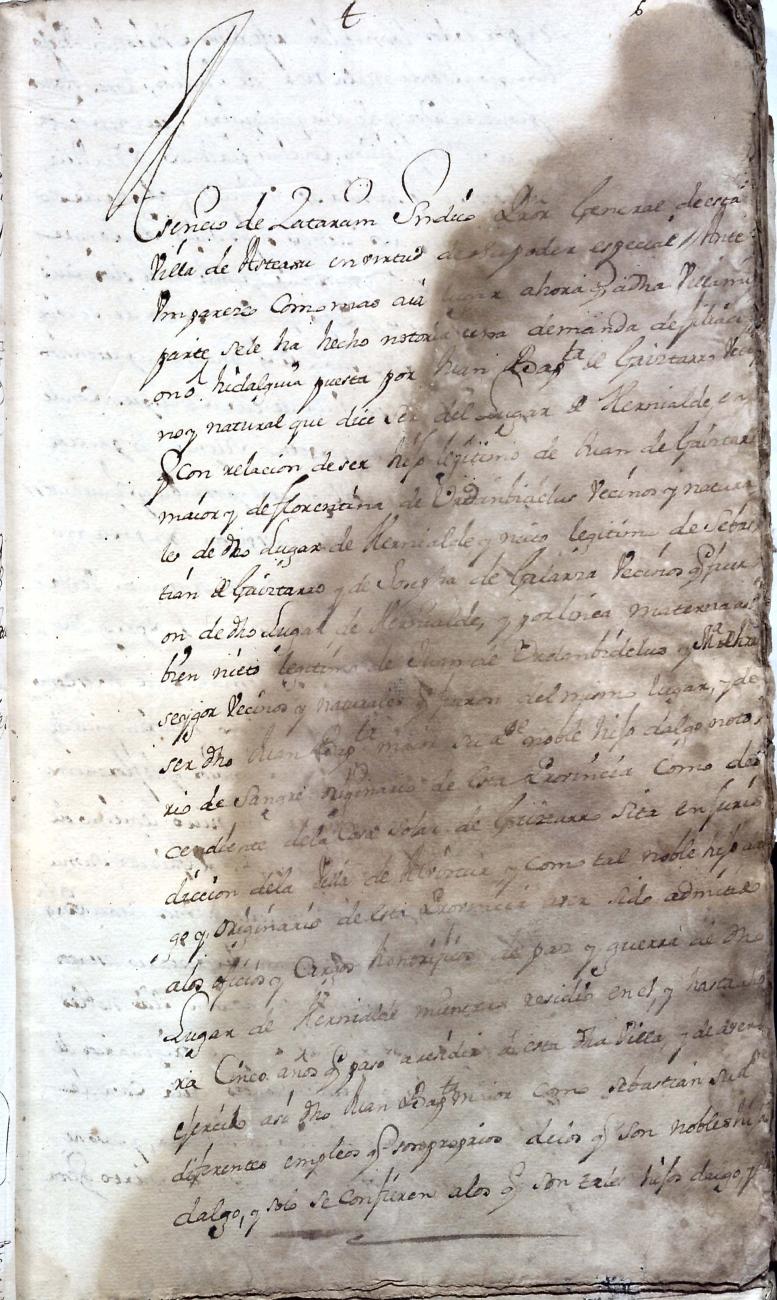 4 6
Asencio de Zatarain Sindico Pror General de esta
Villa de Asteasu en virtud de su poder especial Ante
Vm parezco como mas aia lugar ahora q adha Villa mi
parte sele ha hecho notoria una demanda de filiaci
on hidalguia puesta por Juan Bapta de Gaiztarro veci
no y natural que dice ser del Lugar de Hernialde, en
q con relacion de ser hijo legitimo de Juan de Gaiztarro
maior y de florentina de Urdanbidelus Vecinos y natura
les de dho Lugar de Hernialde y nieto legitimo de Sebas
tian de Gaiztarro y de Josepha de Galarza Vecinos q fuer
on de dho Lugar de Hernialde, y por linea materna as
bien nieto legitimo de Juan de Urdanbidelus y Ma de
Vecinos y naturales q fueron del mismo lugar, y de
ser dho Juan Bapta maior su Pde noble hijo dalgo noto
rio de Sangre originario de esta Provincia como des
cendiente dela Casa Solar de Gaiztarro sita en juris
diccion dela Villa de y como tal noble hijo dal
go y originario de esta Provincia aver sido admitido
alos oficios y Cargos honorificos de paz y guerra de dho
Lugar de Hernialde mientras residio en el, y hasta
ra Cinco años q paso a residir a esta dha Villa, y de aver
ejercido asi dho Juan Bapta maior como Sebastian su Pe
diferentes empleos q son proprios de los q son nobles hijos
dalgo, y solo se confieren alos q son tales hijos dalgo,